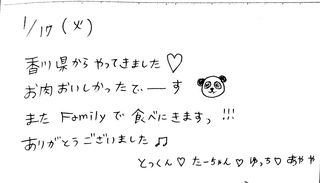 1/17 (火)
香川県からやってきました♡
お肉おいしかったで―す
また Familyで 食べにきますっ!!!
ありがとうございました♫
とっくん♡たーちゃん♡ゆっち♡あやや